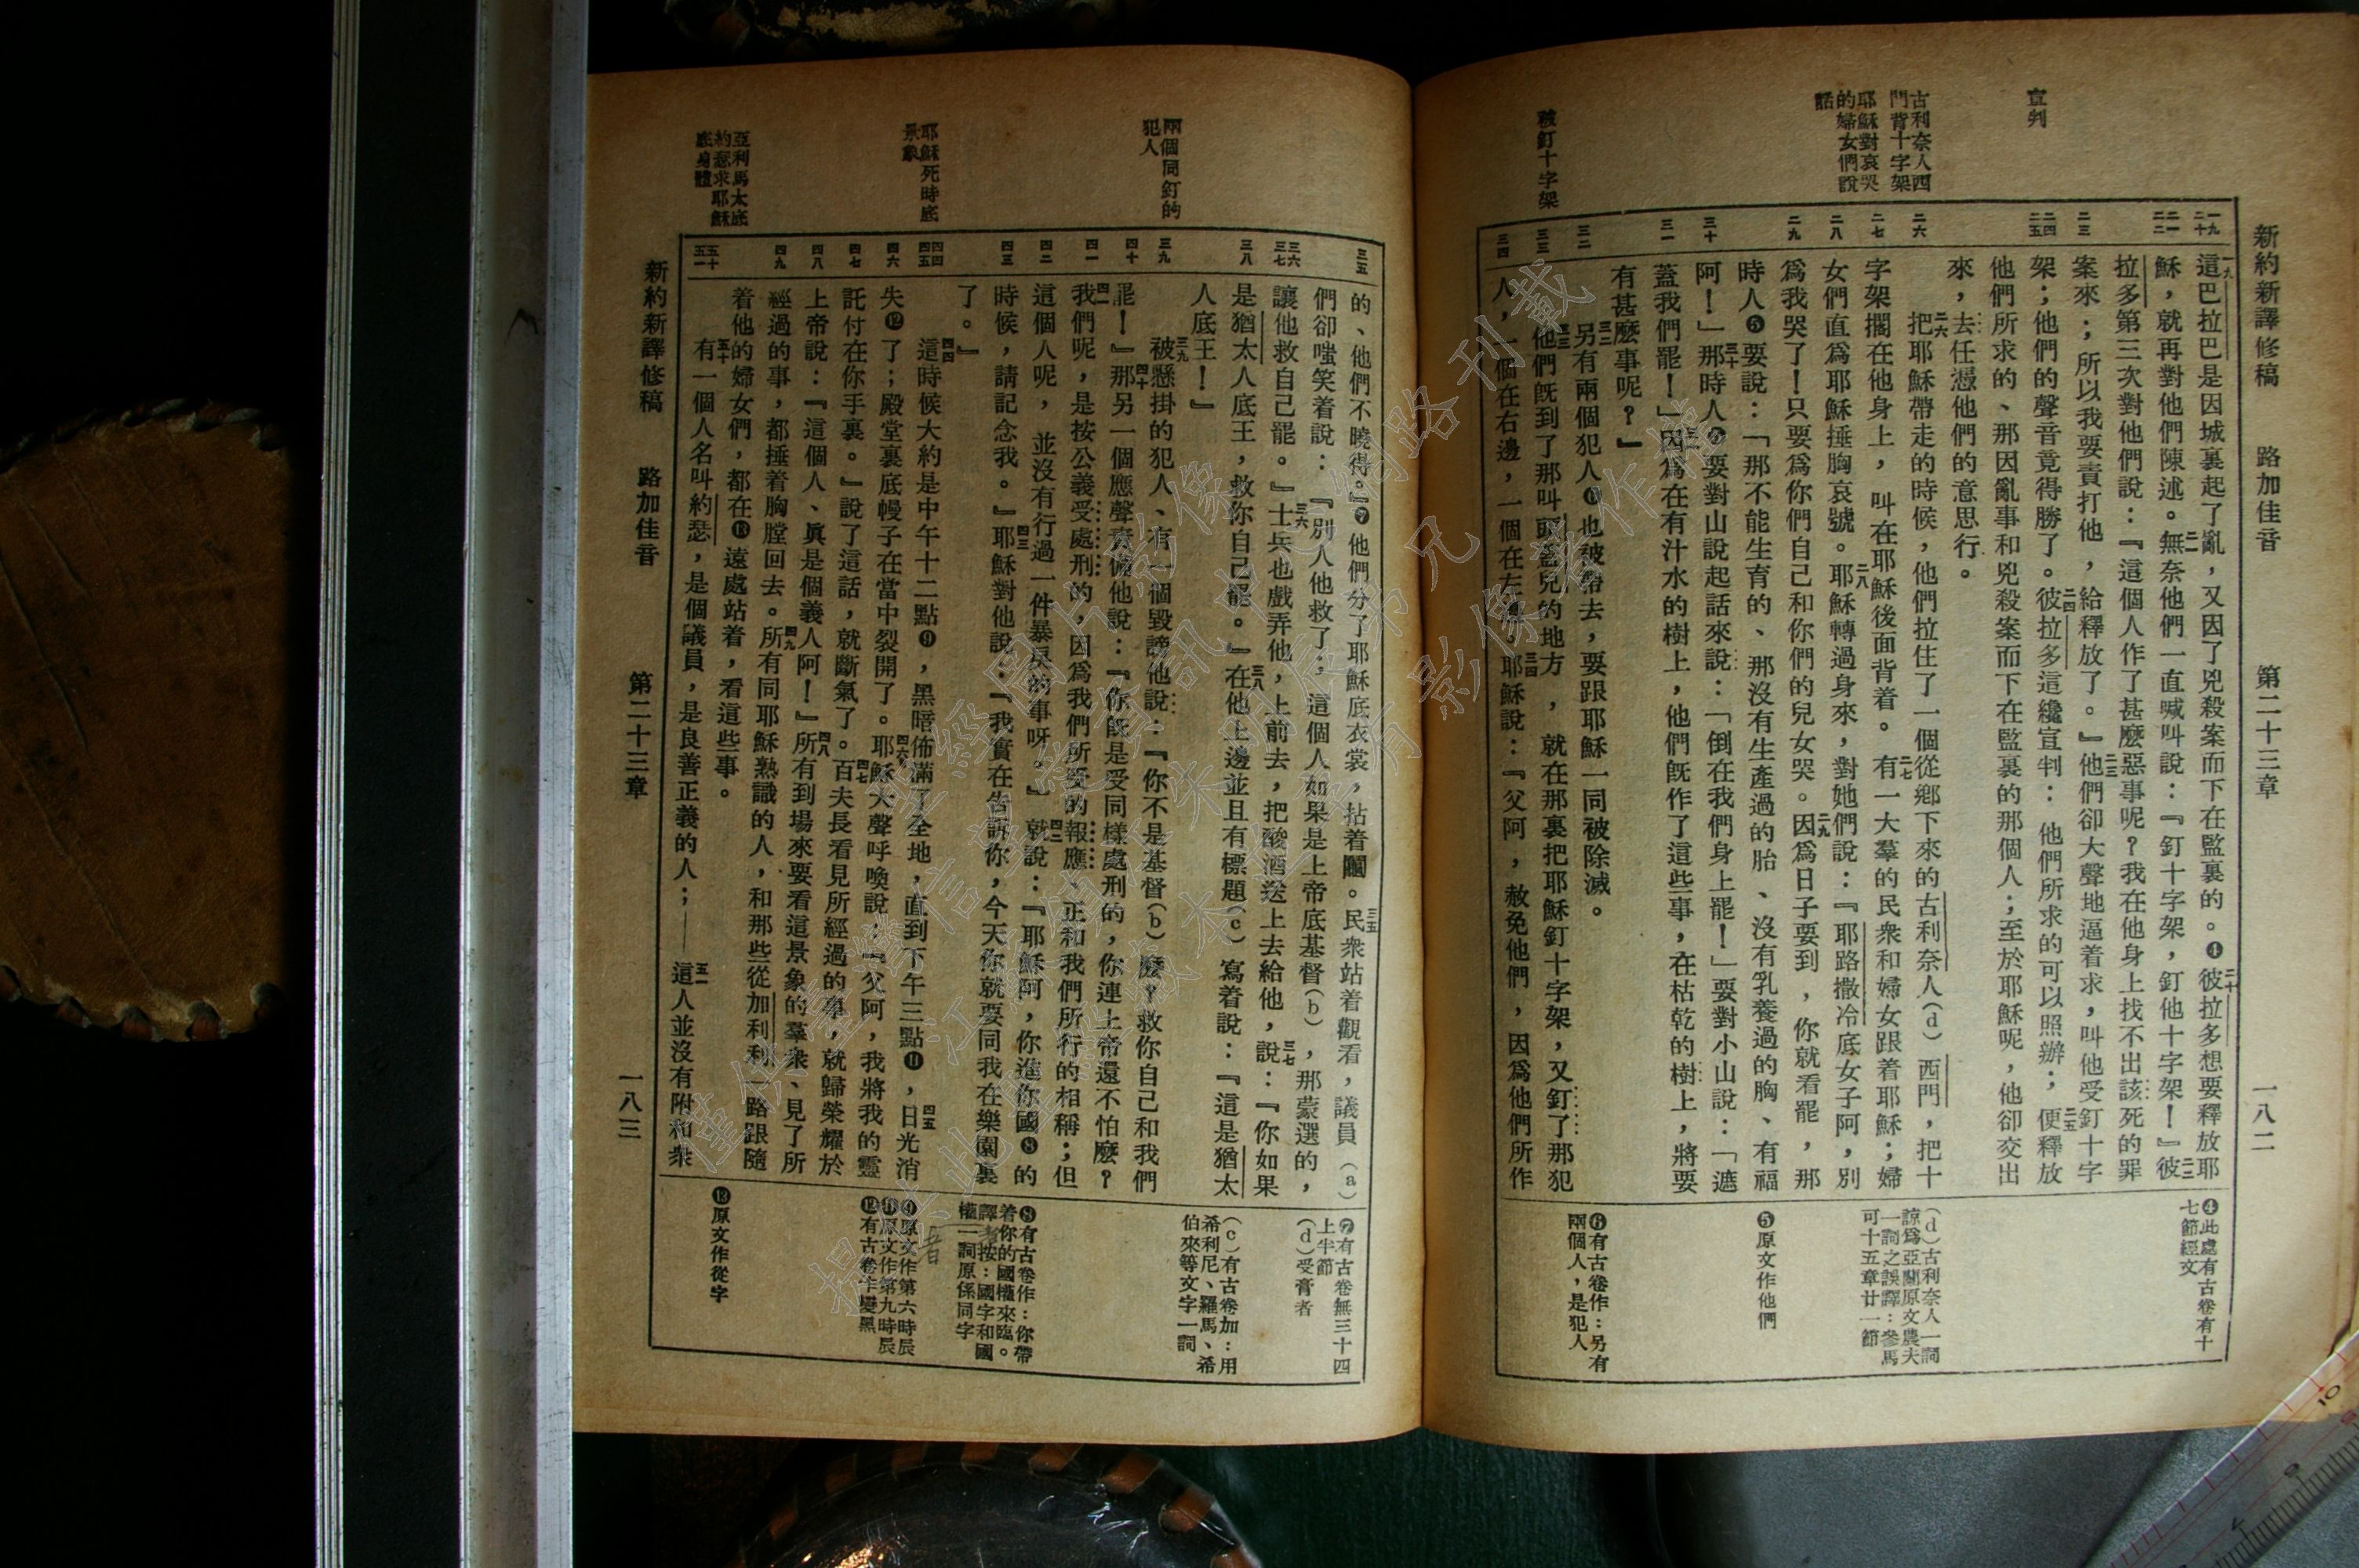 新約新譯修稿　路加佳音　第二十三章　一八二
宣判
古利奈人西
門背十字架
耶穌對哀哭
的婦女們說
話
被釘十字架
一九
二十
二一
二二
二三
二四
二五
二六
二七
二八
二九
三十
三一
三二
三三
三四
一九這巴拉巴是因城裏起了亂，又因了兇殺案而下在監裏的。❹二十彼拉多想要釋放耶
穌，就再對他們陳述。二一無奈他們一直喊叫說：『釘十字架，釘他十字架！』二二彼
拉多第三次對他們說：『這個人作了甚麼惡事呢？我在他身上找不出該死的罪
案來；所以我要責打他，給釋放了。』二三他們卻大聲地逼着求，叫他受釘十字
架；他們的聲音竟得勝了。二四彼拉多這纔宣判：他們所求的可以照辦；二五便釋放
他們所求的、那因亂事和兇殺案而下在監裏的那個人；至於耶穌呢，他卻交出
來，去任憑他們的意思行。
二六把耶穌帶走的時候，他們拉住了一個從鄉下來的古利奈人(d)西門，把十
字架擱在他身上，叫在耶穌後面背着。二七有一大羣的民衆和婦女跟着耶穌；婦
女們直爲耶穌捶胸哀號。二八耶穌轉過身來，對她們說：『耶路撒冷底女子阿，別
爲我哭了！只要爲你們自己和你們的兒女哭。二九因爲日子要到，你就看罷，那
時人❺要說：「那不能生育的、那沒有生產過的胎、沒有乳養過的胸、有福
阿！」三十那時人❺要對山說起話來說：「倒在我們身上罷！」要對小山說：「遮
蓋我們罷！」三一因爲在有汁水的樹上，他們旣作了這些事，在枯乾的樹上，將要
有甚麼事呢？』
三二另有兩個犯人❻也被帶去，要跟耶穌一同被除滅。
三三他們旣到了那叫頭蓋兒的地方，就在那裏把耶穌釘十字架，又釘了那犯
人，一個在右邊，一個在左邊。三四耶穌說：『父阿，赦免他們，因爲他們所作
❹此處有古卷有十
七節經文
(d)古利奈人一詞
諒爲亞蘭原文農夫
一詞之誤譯：參馬
可十五章廿一節
❺原文作他們
❻有古卷作：另有
兩個人，是犯人
兩個同釘的
犯人
耶穌死時底
景象
亞利馬太底
約瑟求耶穌
底身體
三五
三六
三七
三八
三九
四十
四一
四二
四三
四四
四五
四六
四七
四八
四九
五十
五一
的、他們不曉得。』❼他們分了耶穌底衣裳，拈着鬮。三五民衆站着觀看，議員(a)
們卻嗤笑着說：『別人他救了；這個人如果是上帝底基督(b)，那蒙選的，
讓他救自己罷。』三六士兵也戲弄他，上前去，把酸酒送上去給他，三七說：『你如果
是猶太人底王，救你自己罷。』三八在他上邊並且有標題(c)寫着說：『這是猶太
人底王！』
三九被懸掛的犯人、有一個毀謗他說：『你不是基督(b)麼？救你自己和我們
罷！』四十那另一個應聲責備他說：『你旣是受同樣處刑的，你連上帝還不怕麼？
四一我們呢，是按公義受處刑的，因爲我們所受的報應、正和我們所行的相稱；但
這個人呢，並沒有行過一件暴戾的事呀。』四二就說：『耶穌阿，你進你國❽的
時候，請記念我。』四三耶穌對他說：『我實在告訴你，今天你就要同我在樂園裏
了。』
四四這時候大約是中午十二點❾，黑暗佈滿了全地，直到下午三點⓫，四五日光消
失⓬了；殿堂裏底幔子在當中裂開了。四六耶穌大聲呼喚說：『父阿，我將我的靈
託付在你手裏。』說了這話，就斷氣了。四七百夫長看見所經過的事，就歸榮耀於
上帝說：『這個人、眞是個義人阿！』四八所有到場來要看這景象的羣衆、見了所
經過的事，都捶着胸膛回去。四九所有同耶穌熟識的人，和那些從加利利一路跟隨
着他的婦女們，都在⓭遠處站着，看這些事。
五十有一個人名叫約瑟，是個議員，是良善正義的人；——五一這人並沒有附和衆
❼有古卷無三十四
上半節
(d)受膏者
(c)有古卷加：用
希利尼、羅馬、希
伯來等文字一詞
❽有古卷作：你帶
着你的國權來臨。
譯者按：國字和國
權二詞原係同字
❾原文作第六時辰
⓫原文作第九時辰
⓬有古卷作變黑
⓭原文作從字
新約新譯修稿　路加佳音　第二十三章　一八三